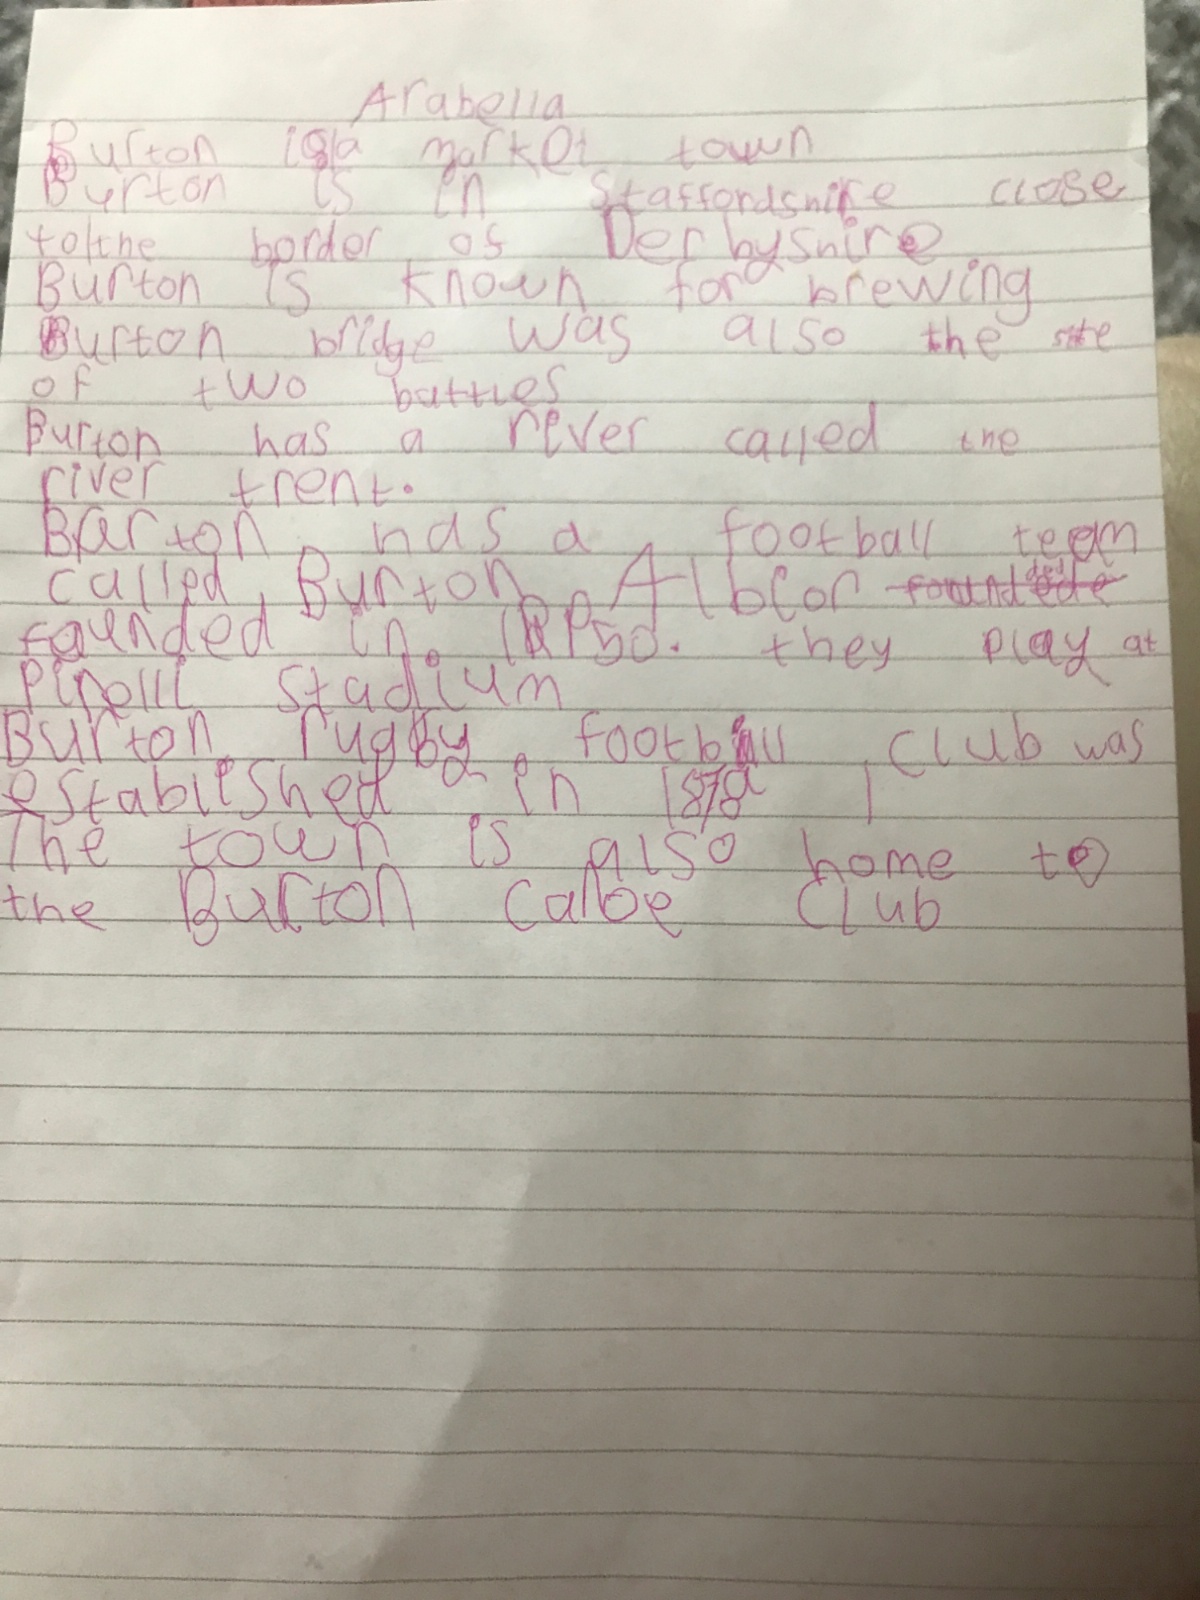 Arabella
Burton is a market town
Burton is in Staffordshire close
to the border of Derbyshire
Burton is known for brewing
Burton bridge was also the site
of two battles
Burton has a river called the
river trent.
Barton has a football team
called Burton Albion
founded in. they play at
Pirelli stadium
Burton rugby football club was
established in
The town is also home to
the Burton canoe club